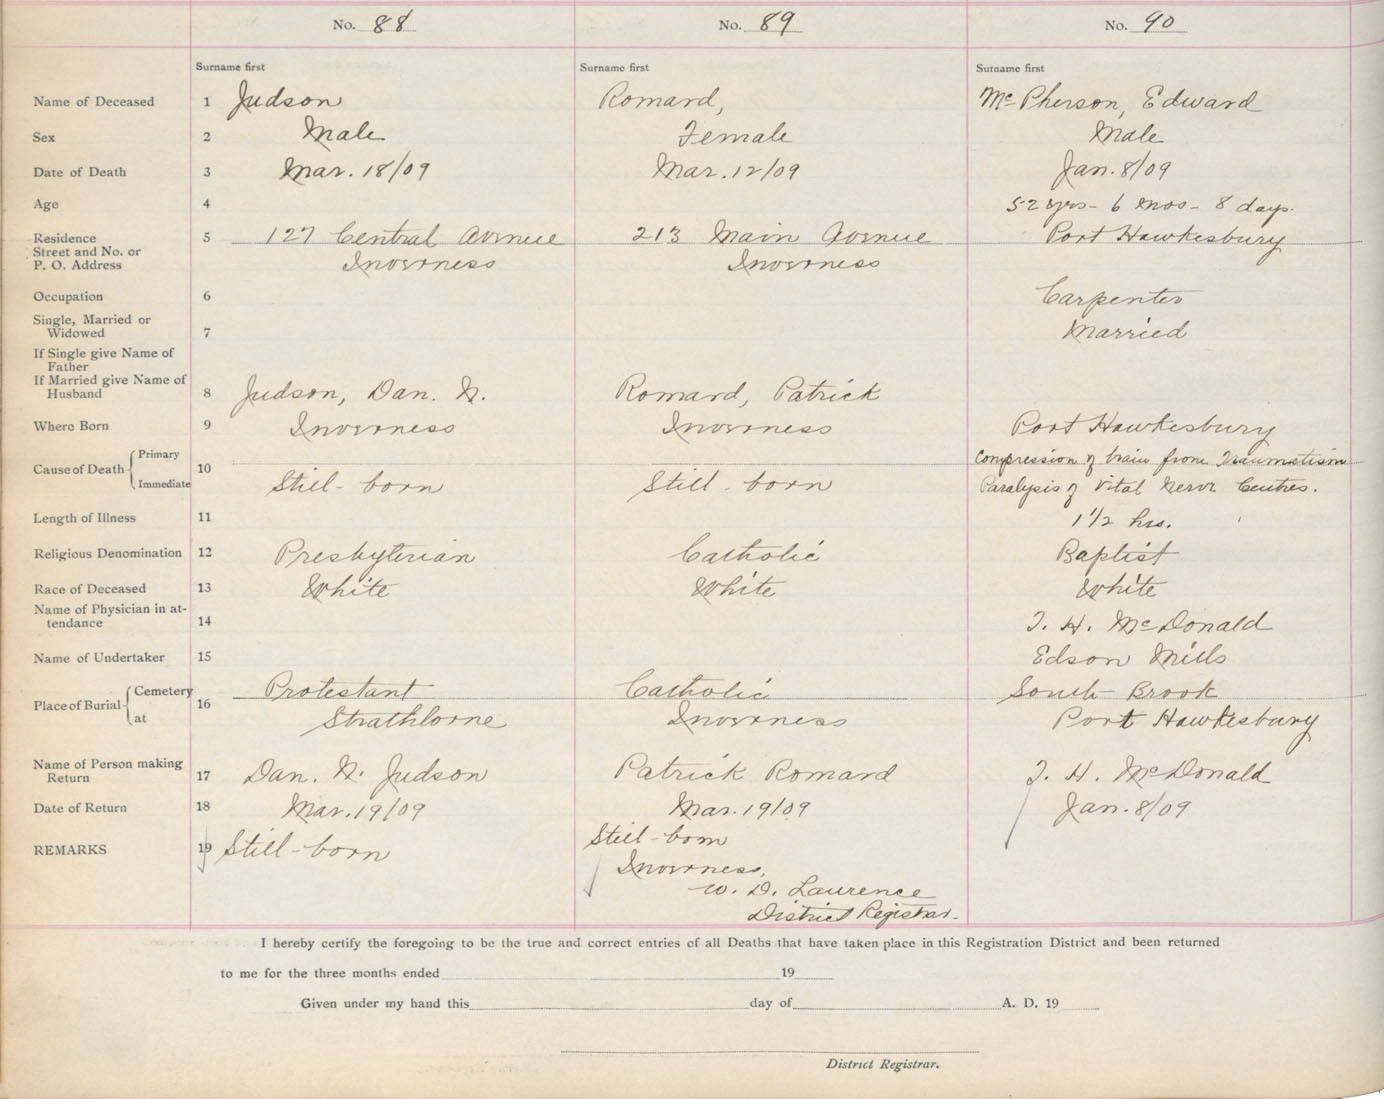 No. 88 No. 89 No. 90
Surname first Surname first Surname first
Name of Deceased 1 Judson Romard, McPherson, Edward
Sex 2 Male Female Male
Date of Death 3 Mar. 18/09 Mar. 12/09 Jan. 8/09
Age 4 52 yrs - 6 mos - 8 days.
Residence 5 127 Central Avenue 213 Main Avenue Port Hawkesbury
Street and No. or
P. O. Address Inverness Inverness
Occupation 6 Carpenter
Single, Married or
Widowed 7 Married
If Single give Name of
Father
If Married give Name of
Husband 8 Judson, Dan. N. Romard, Patrick
Where Born 9 Inverness Inverness Port Hawkesbury
Cause of Death 10 Primary Compression of brain from Traumatism
Immediate Still-born Still-born Paralysis of Vital Nerve Centres.
Length of Illness 11 1 1/2 hrs.
Religious Denomination 12 Presbyterian Catholic Baptist
Race of Deceased 13 White White White
Name of Physician in at-
tendance 14 J. H. McDonald
Name of Undertaker 15 Edson Mills
Place of Burial 16 Cemetery Protestant Catholic South Brook
at Strathlorne Inverness Port Hawkesbury
Name of Person making
Return 17 Dan. N. Judson Patrick Romard J. H. McDonald
Date of Return 18 Mar. 19/09 Mar. 19/09 Jan. 8/09
REMARKS 19 Still-born Still-born
Inverness,
W. D. Laurence
District Registrar.
I hereby certify the foregoing to be the true and correct entries of all Deaths that have taken place in this Registration District and been returned
to me for the three months ended 19
Given under my hand this day of A. D. 19
District Registrar.